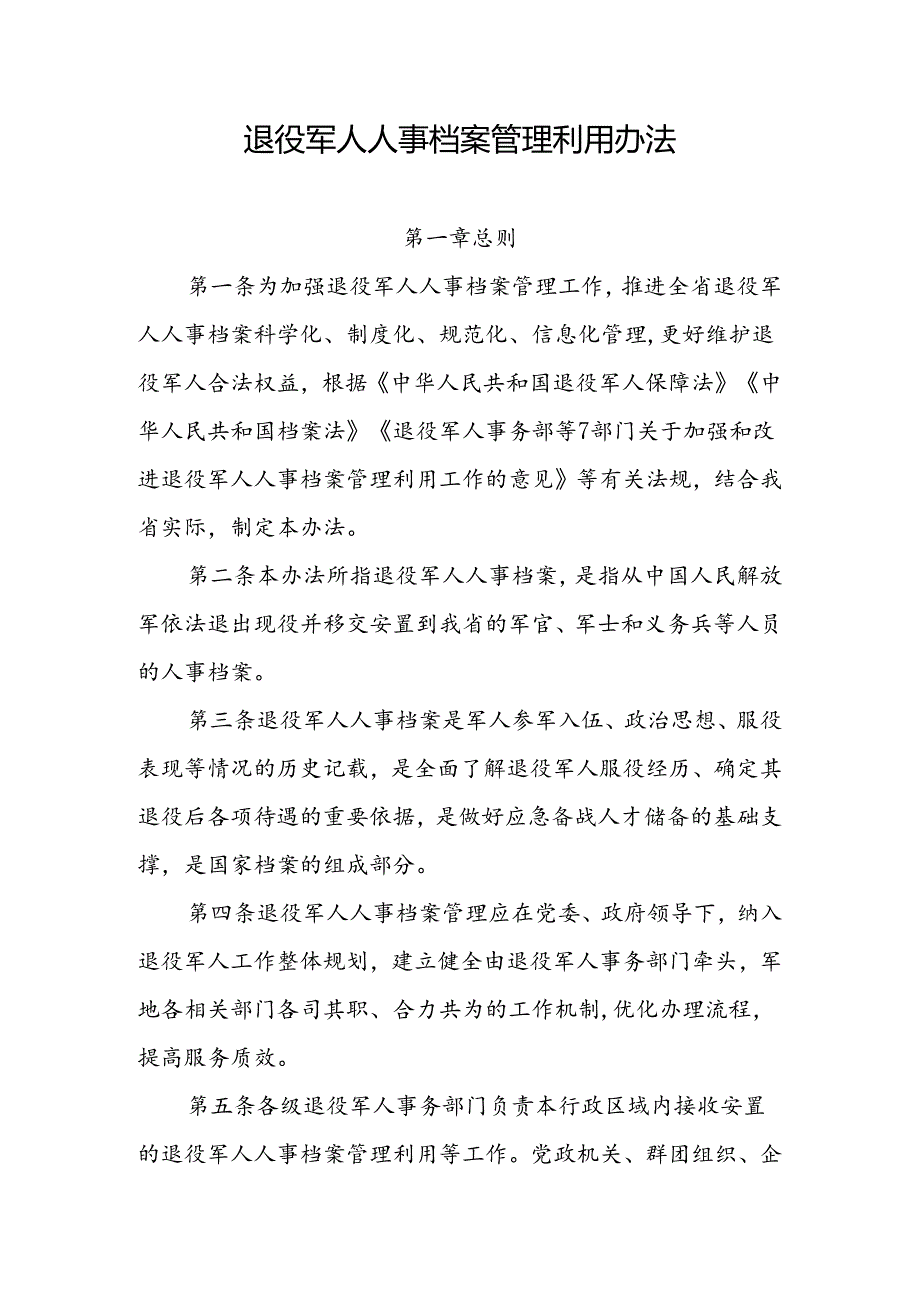 退役军人人事档案管理利用办法
第一章总则
第一条为加强退役军人人事档案管理工作,推进全省退役军
人人事档案科学化、制度化、规范化、信息化管理,更好维护退
役军人合法权益，根据《中华人民共和国退役军人保障法》《中
华人民共和国档案法》《退役军人事务部等7部门关于加强和改
进退役军人人事档案管理利用工作的意见》等有关法规，结合我
省实际，制定本办法。
第二条本办法所指退役军人人事档案,是指从中国人民解放
军依法退出现役并移交安置到我省的军官、军士和义务兵等人员
的人事档案。
第三条退役军人人事档案是军人参军入伍、政治思想、服役
表现等情况的历史记载，是全面了解退役军人服役经历、确定其
退役后各项待遇的重要依据，是做好应急备战人才储备的基础支
撑，是国家档案的组成部分。
第四条退役军人人事档案管理应在党委、政府领导下，纳入
退役军人工作整体规划，建立健全由退役军人事务部门牵头，军
地各相关部门各司其职、合力共为的工作机制,优化办理流程，
提高服务质效。
第五条各级退役军人事务部门负责本行政区域内接收安置
的退役军人人事档案管理利用等工作。党政机关、群团组织、企